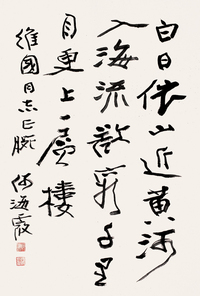 白日依山近黄河
入海流欲窮千里
目更上一層樓
維國同志正腕 何海霞